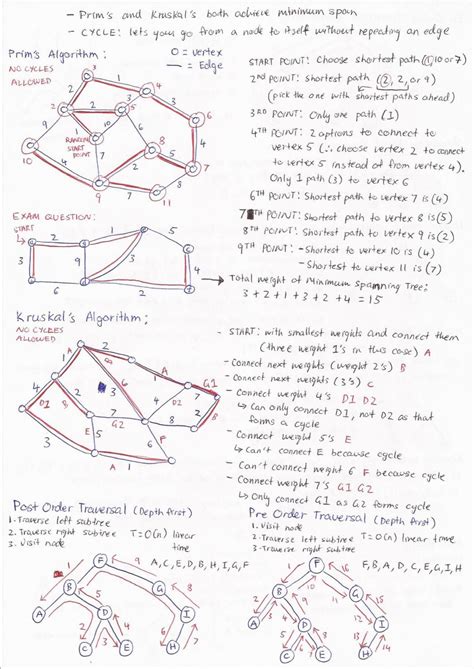 - Prim's and Kruskal's both achieve minimum span
- CYCLE: lets you go from a node to itself without repeating an edge
Prim's Algorithm:
O = vertex
— = Edge
NO CYCLES
ALLOWED
RANDOM
START
POINT
START POINT: Choose shortest path (1, 10 or 7)
2ND POINT: Shortest path (2, 2, or 9)
(pick the one with shortest paths ahead)
3RD POINT: Only one path (1)
4TH POINT: 2 options to connect to
vertex 5 (∴ choose vertex 2 to connect
to vertex 5 instead of from vertex 4).
Only 1 path (3) to vertex 6
6TH POINT: Shortest path to vertex 7 is (4)
7TH POINT: Shortest path to vertex 8 is (5)
8TH POINT: Shortest path to vertex 9 is (6)
9TH POINT: - Shortest to vertex 10 is (4)
- Shortest to vertex 11 is (7)
EXAM QUESTION:
START
→ Total weight of Minimum Spanning Tree:
3 + 2 + 1 + 3 + 2 + 4 = 15
Kruskal's Algorithm:
NO CYCLES
ALLOWED
- START: with smallest weights and connect them
(three weight 1's in this case) A
- Connect next weights (weight 2's) B
- Connect next weights (3's) C
- Connect weight 4's D1 D2
↳ Can only connect D1, not D2 as that
forms a cycle
- Connect weight 5's E
↳ Can't connect E because cycle
- Can't connect weight 6 F because cycle
- Connect weight 7's G1 G2
↳ Only connect G1 as G2 forms cycle
Post Order Traversal (Depth first)
1. Traverse left subtree
2. Traverse right subtree
3. Visit node
T=O(n) linear
time
A, C, E, D, B, H, I, G, F
Pre Order Traversal (Depth first)
1. Visit node
2. Traverse left subtree
3. Traverse right subtree
T=O(n) linear
time
F, B, A, D, C, E, G, I, H